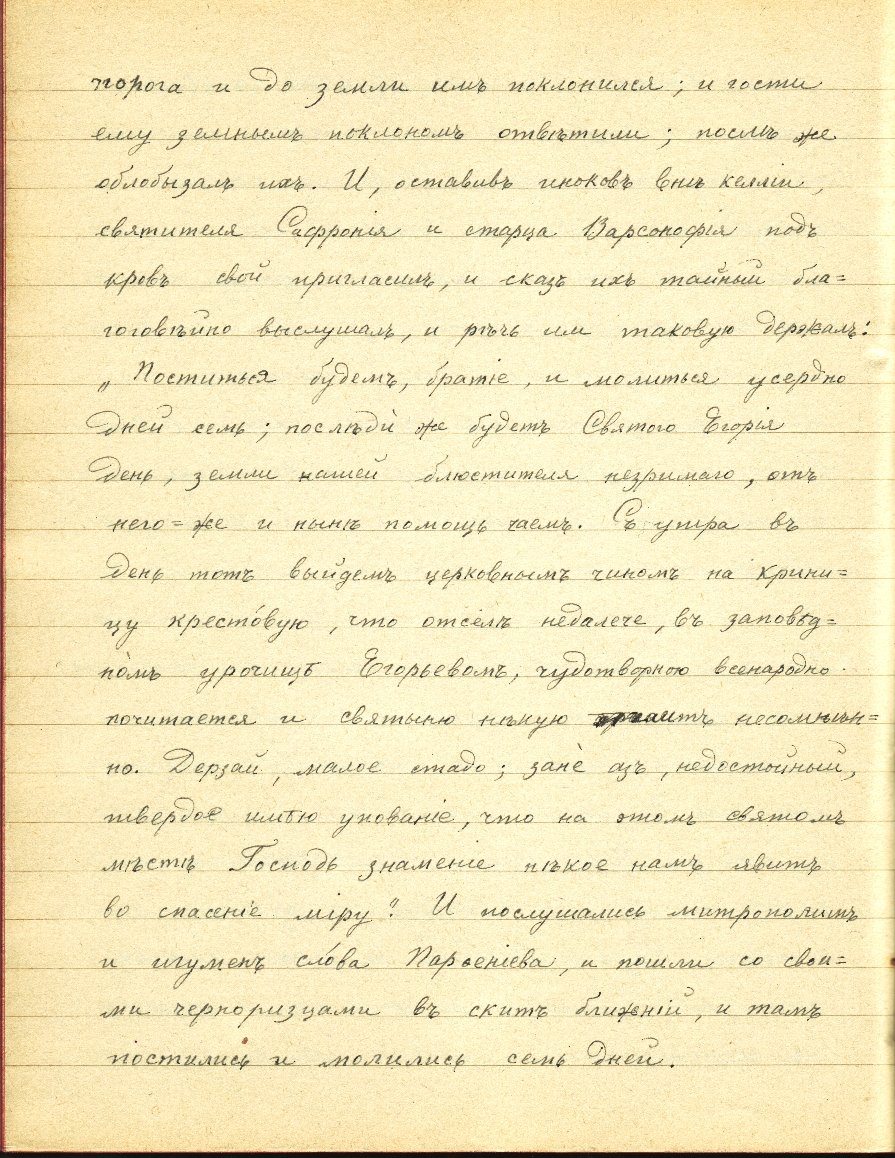 порога и до земли имъ поклонился; и гости
ему земнымъ поклономъ отвѣтили; послѣ же
облобызалъ ихъ. И, оставивъ иноковъ внѣ келліи,
святителя Софронія и старца Варсонофія подъ
кровъ свой пригласилъ, и сказъ ихъ тайный бла=
гоговѣйно выслушалъ, и рѣчь им таковую держалъ:
„Поститься будемъ, братіе, и молиться усердно
дней семь; послѣди́ же будетъ Святого Егорія
день, земли нашей блюстителя незримаго, отъ
него=же и нынѣ помощь чаемъ. Съ утра въ
день тотъ выйдемъ церковнымъ чиномъ на крини=
цу кресто́вую, что отселѣ недалече, въ заповѣд=
номъ урочищѣ Егорьевомъ, чудотворною всенародно
почитается и святыню нѣкую несомнѣн=
но. Дерзай, малое стадо; зане́ азъ, недостойный,
твердое имѣю упованіе, что на этомъ святомъ
мѣстѣ Господь знаменіе нѣкое намъ явитъ
во спасеніе міру". И послушались митрополитъ
и игуменъ сло́ва Парѳеніева, и пошли со свои=
ми черноризцами въ скитъ ближній, и тамъ
постились и молились семь дней.